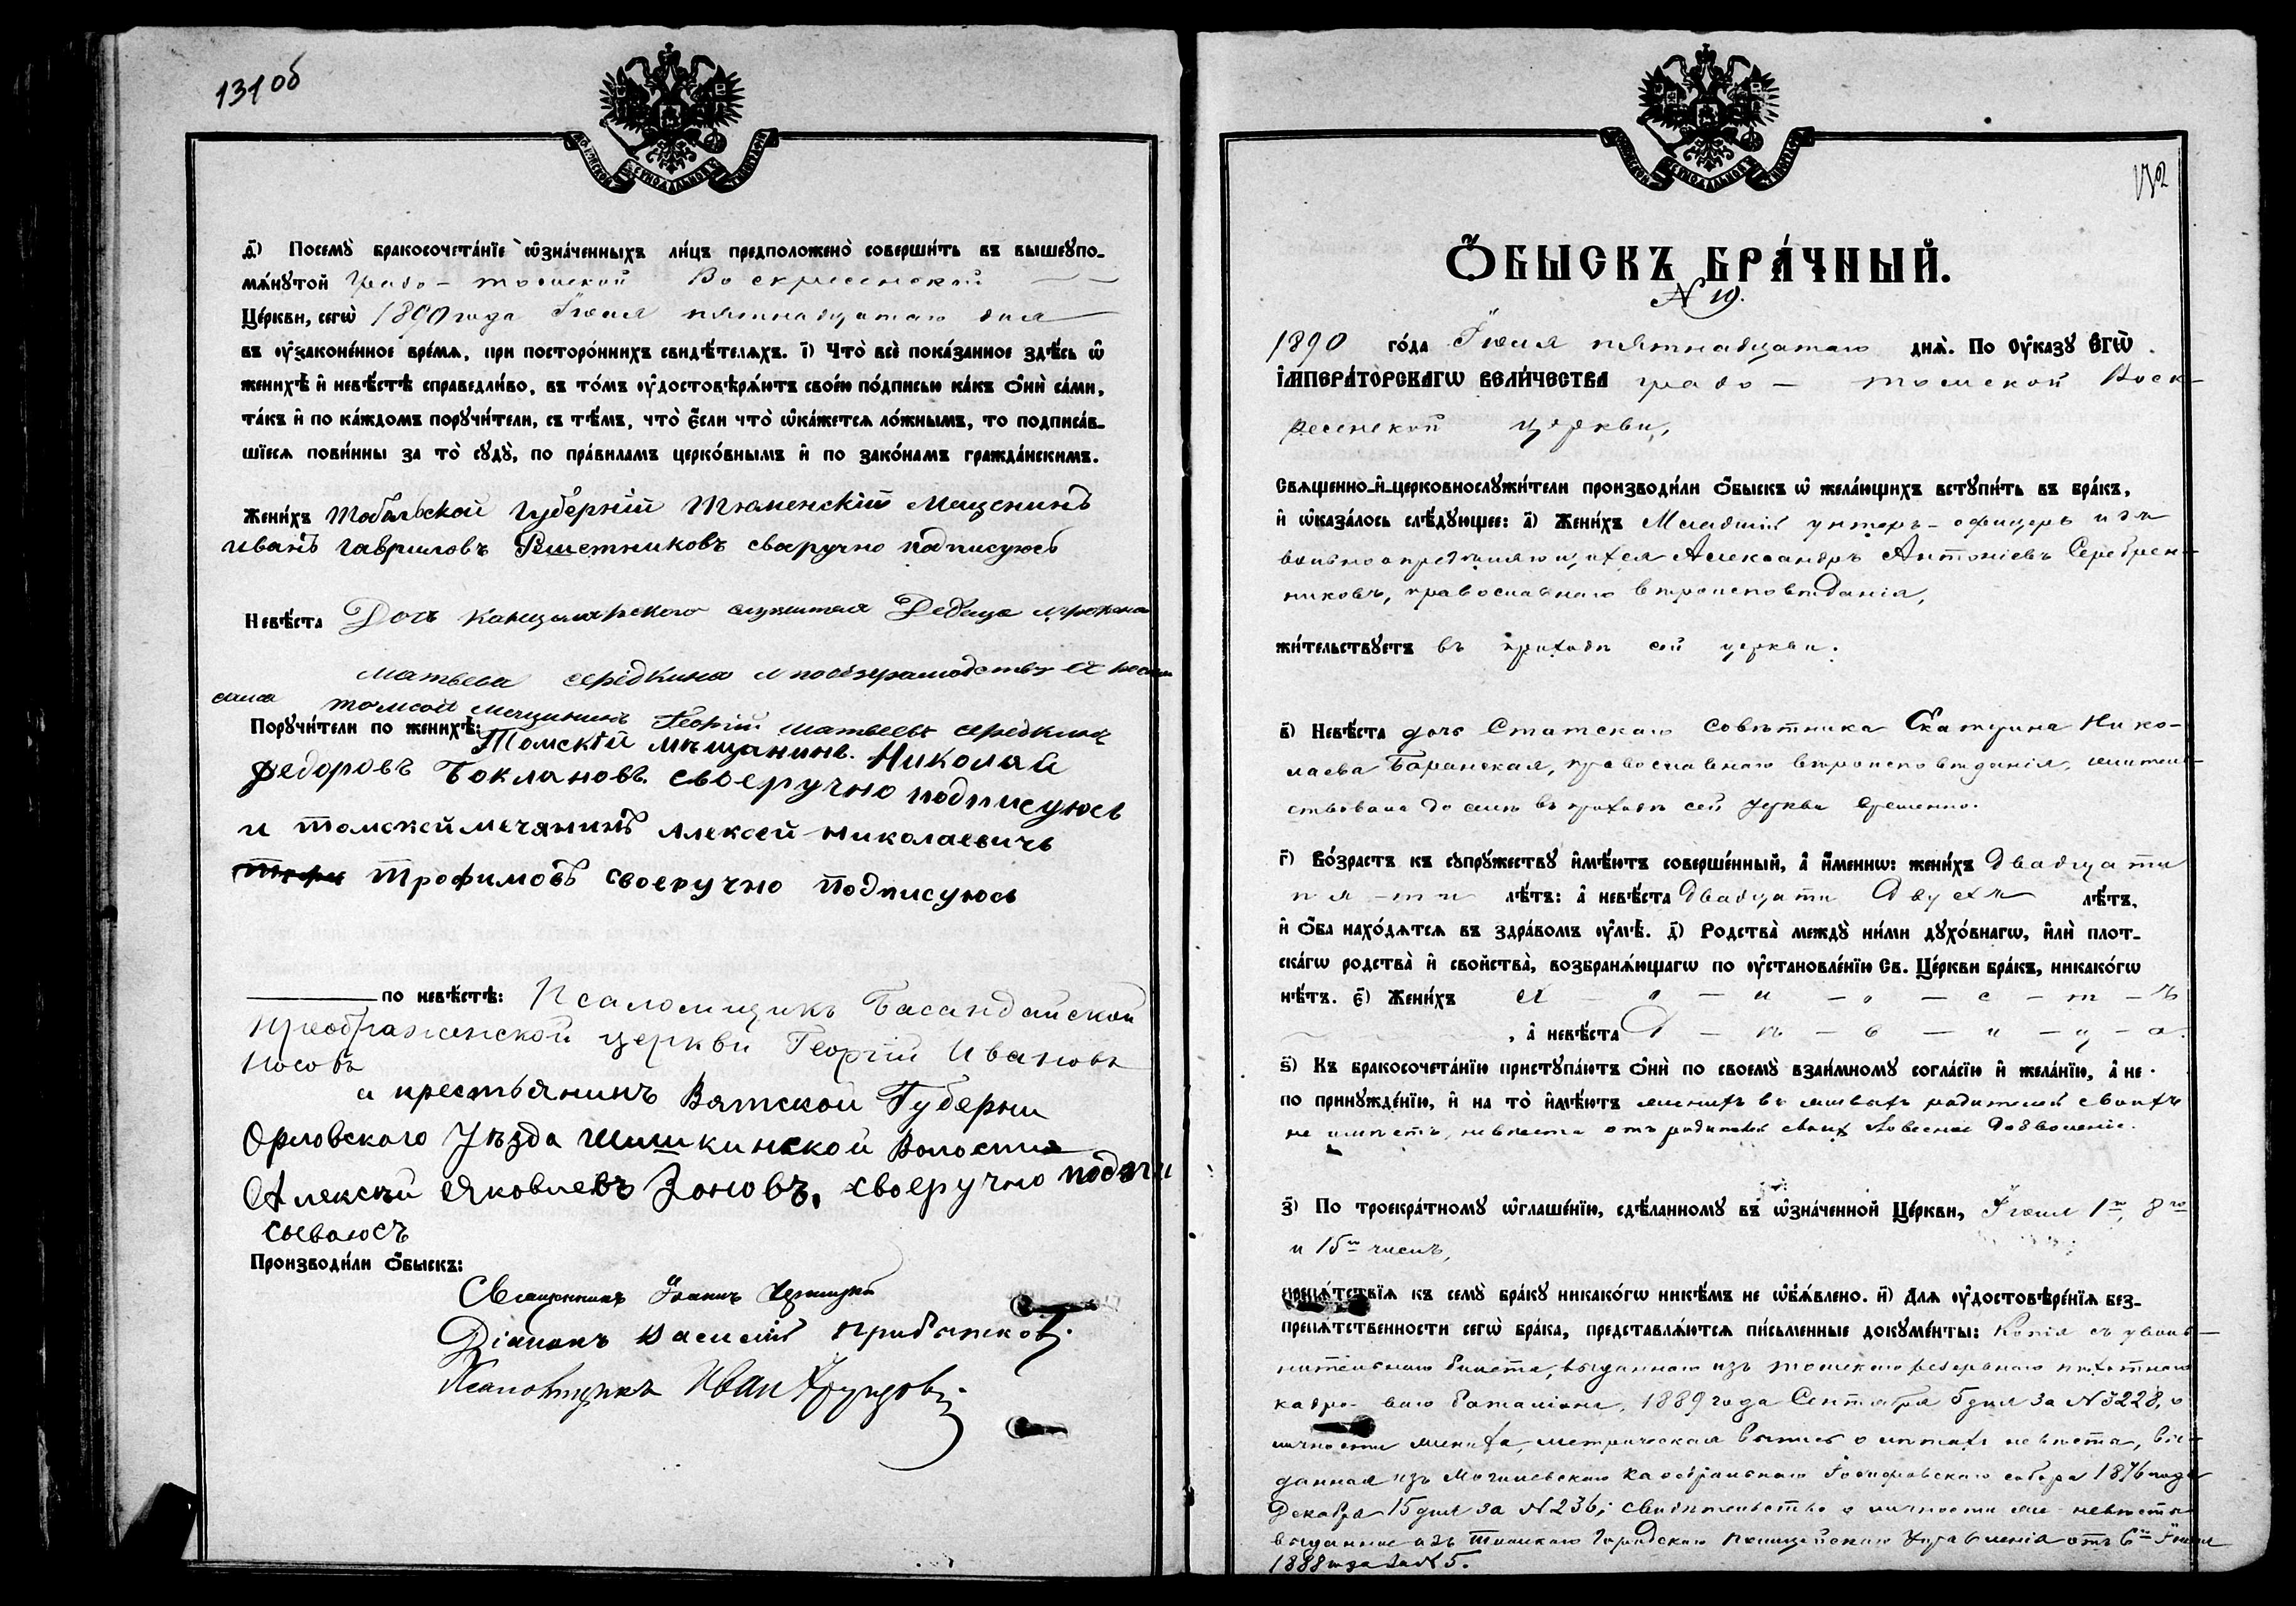 131 об
д҃) Посемꙋ̀ бракосочета́нїе ѡ҆зна́ченныхъ ли́цъ предположено̀ соверши́ть въ вышеꙋпо-
мѧ́нꙋтой градо-томской Воскресенской
Це́ркви, сегѡ̀ 1890 года Iюля пятнадцатаго дня
въ ᲂу҆зако́не́нное вре́мѧ, при посторо́ннихъ свидѣ́телѧхъ. і҃) Что̀ всѐ пока́занное здѣ́сь ѡ҆
женихѣ̀ и҆ невѣ́стѣ справедли́во, въ то́мъ ᲂу҆достовѣрѧ́ютъ свое́ю по́дписью ка́къ ѻ҆нѝ са́ми,
та́къ и҆ по ка́ждомъ порꙋчи́тели, съ тѣ́мъ, что̀ є҆́сли что̀ ѡ҆ка́жетсѧ ло́жнымъ, то подписа́в-
шїесѧ пови́нны за то̀ сꙋдꙋ̀, по пра́виламъ церко́внымъ и҆ по зако́намъ гражда́нскимъ.
Жени́хъ Тобольской Губернiй Тюменскiй Мещенинъ
Иванъ гавриловъ Решетниковъ сваручно подписуюсь
Невѣ́ста Дочь канцелярского служителя Девица
Матьвева середкина
томской мещининъ Георгiй матвеевъ
Порꙋчи́тели по женихѣ̀: Томскiй мѣщанинъ. Николай
Федоровъ Бокланов. своеручно подписуюсь
и томскеймечянинъ Алексей Николаевичь
Трофимовъ своеручно подписуюсь
по невѣ́стѣ: Псаломщикъ Басандайской
Преображенской церкви Георгiй Ивановъ
Носовъ
и крестьянинъ Вятской Губерни
Орловского Уѣзда Шишкинской Волости
Алексѣй Яковлевъ Зоновъ, своеручно подпи
сываюсъ
Производи́ли ѻ҆́быскъ:
Священникъ Iоаннъ
Дiаконъ Василiй Прибытков.
Псаломщикъ Иван
132
Ѻ҆́БЫСКЪ БРА́ЧНЫЙ.
N 19.
1890 го́да Iюля пятнадцатаго днѧ̀. По ᲂу҆ка́зꙋ Є҆ГѠ̀
І҆МПЕРА́ТОРСКАГѠ ВЕЛИ́ЧЕСТВА градо-томской Воск-
ресенской церкви,
Свѧщенно-и҆-церковнослꙋжи́тели производи́ли ѻ҆́быскъ ѡ҆ жела́ющихъ встꙋпи́ть въ бра́къ,
и҆ ѡ҆каза́лось слѣ́дꙋющее: а҃) Жени́хъ Младшiй унтеръ-офицеръ изъ
вольноопредѣляющихся Александръ Антонiевъ Серебрен-
никовъ, православнаго вѣроисповѣданiя,
жи́тельствꙋетъ въ приходѣ сей церкви.
в҃) Невѣ́ста дочь Статскаго Совѣтника Екатерина Нико-
лаева Баранская, православнаго вѣроисповѣданiя, житель-
ствовала до селѣ въ приходѣ сей церкви временно.
г҃) Во́зрастъ къ сꙋпрꙋ́жествꙋ и҆мѣ́ютъ соверше́нный, а҆ и҆́менно: жени́хъ двадцати
пя-ти лѣ́тъ: а҆ невѣ́ста двадцати двухъ лѣ́тъ,
и҆ ѻ҆́ба нахо́дѧтсѧ въ здра́вомъ ᲂу҆мѣ̀. д҃) Родства̀ междꙋ̀ ни́ми дꙋхо́внагѡ, и҆лѝ плот-
ска́гѡ родства̀ и҆ свойства̀, возбранѧ́ющагѡ по ᲂу҆становле́нїю Св. Це́ркви бра́къ, никако́гѡ
нѣ́тъ. є҃) Жени́хъ х-о-л-о-с-т-ъ
, а҆ невѣ́ста д-ѣ-в-и-ц-а.
ѕ҃) Къ бракосочета́нїю пристꙋпа́ютъ ѻ҆нѝ по своемꙋ̀ взаи́мномꙋ согла́сїю и҆ жела́нїю, а҆ не
по принꙋжде́нїю, и҆ на то̀ и҆мѣ́ютъ женихъ въ живыхъ родителей своихъ
не имѣетъ, невѣста отъ родителей своихъ словесное дозволенiе.
з҃) По троекра́тномꙋ ѡ҆глаше́нїю, сдѣ́ланномꙋ въ ѡ҆зна́ченной Це́ркви, Iюля 1го, 8го
и 15го числъ,
препѧ́тствїѧ къ семꙋ̀ бра́кꙋ никако́гѡ никѣ́мъ не ѡ҆б̾ѧ́влено. и҃) Длѧ ᲂу҆достовѣре́нїѧ без-
препѧ́тственности сегѡ̀ бра́ка, представлѧ́ютсѧ пи́сьменные докꙋме́нты: Копiя съ уволь-
нительнаго билета, выданнаго изъ томскаго резервнаго пѣхотнаго
кадро-ваго баталiона, 1889 года Сентября 5 дня за N 3228, о
личности жениха, метрическая выпись о лѣтахъ невѣсты, вы-
данная изъ Могилевскаго Кафедральнаго Iосифовскаго собора 1876 года
Декабря 15 дня за N 236; свидѣтельство о личности же невѣсты
выданное изъ Томскаго Городскаго Полицейскаго Управленiя отъ 6го Iюня
1888 года за N 5.